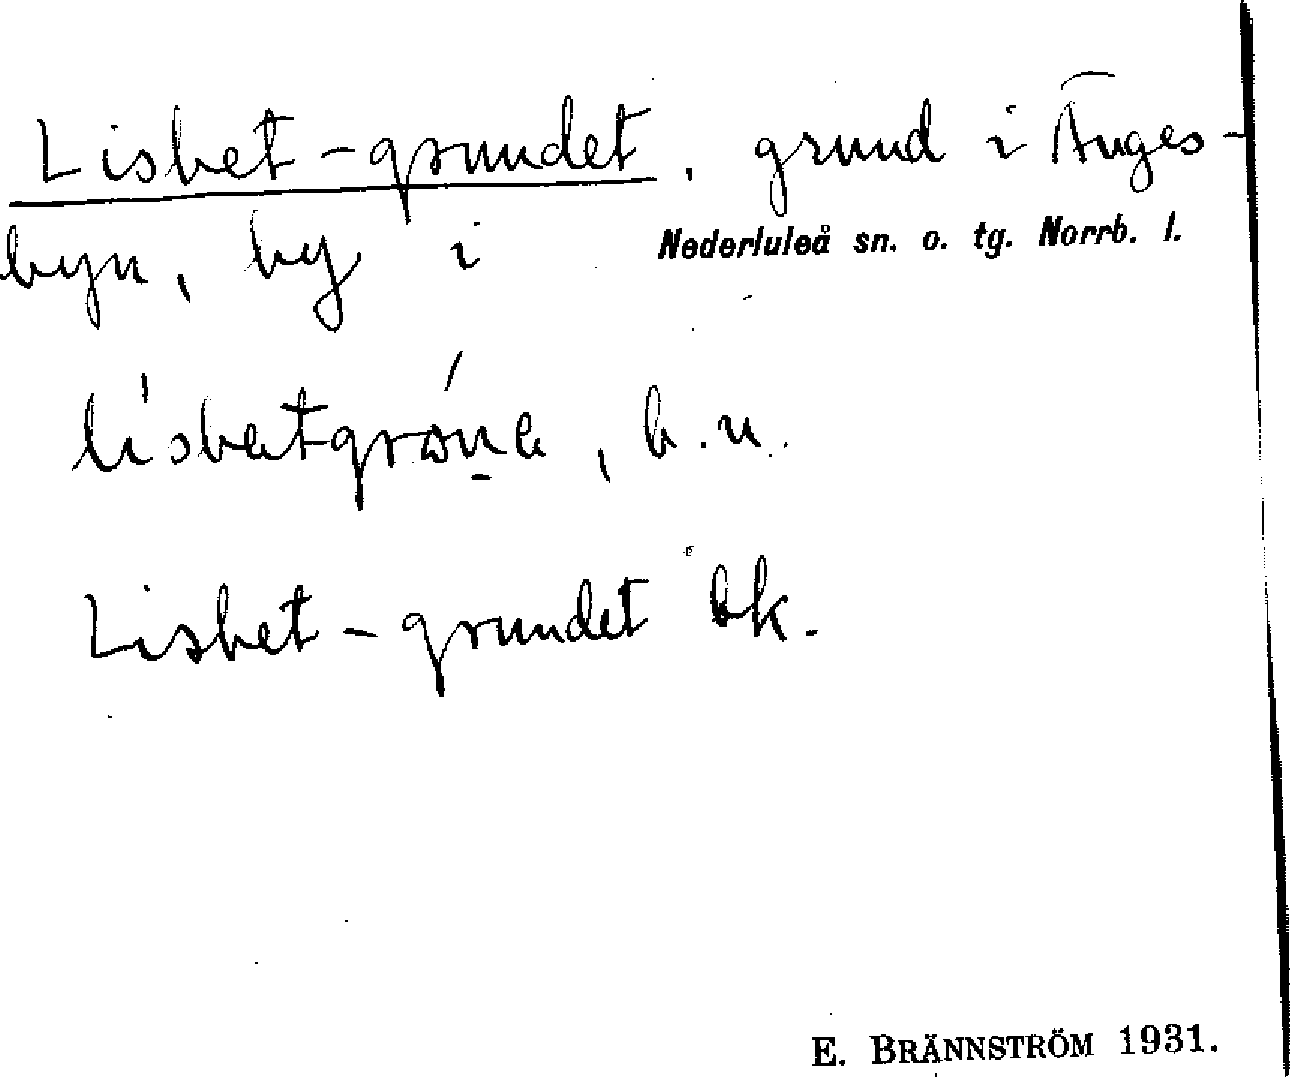 Lisbet-grundet, grund i Änges-
byn, by i Nederluleå sn. o. tg. Norrb. l.
b.n.
Lisbet-grundet bk.
E. BRÄNNSTRÖM 1931.